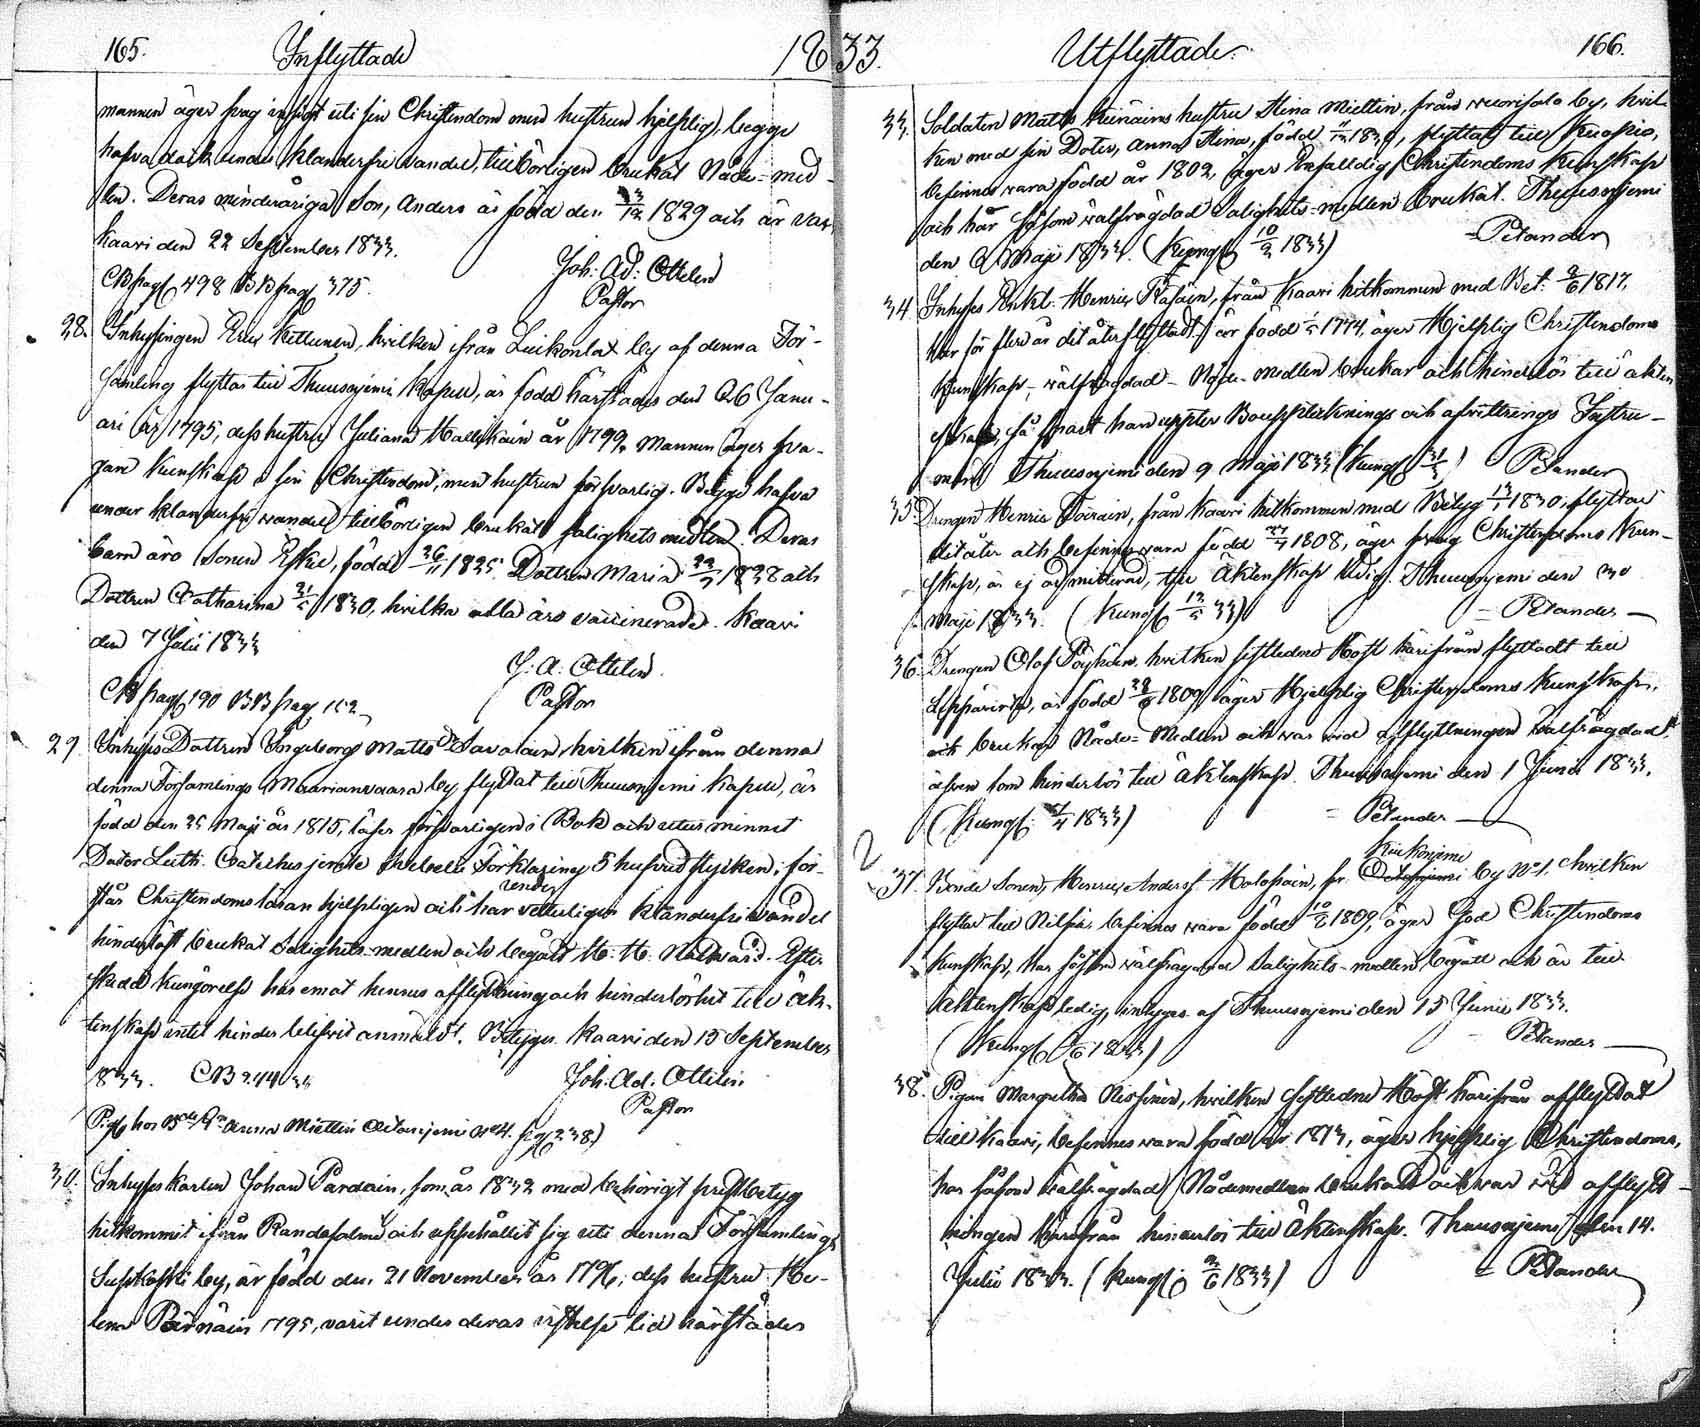 165. Inflyttade 1833.
mannen äger svag insigt uti sin Christendom men hustrun hjelplig, begge
hafva dock under klanderfri vandel, tillbörligen brukat Nåde-med-
len. Deras minderåriga Son, Anders är född den 1829 och är vac
Kaavi den 22 September 1833.
CB pag 498 BB pag 375. Joh: Ad: Ottelin
Pastor
28. Inhysingen Eric Kettunen, hvilken ifrån Luikonlax by af denna För-
samling flyttar till Thuusnjemi Kapell, är född härstädes den 26 Janu-
ari år 1795, dess hustru Juliana Mallskain år 1799. Mannen äger sva-
gare Kunskap i sin Christendom, men hustrun försvarlig. Begge hafva
under klanderfri wandel tillbörligen brukat salighets medlen. Deras
barn äro Sonen född 26/11 1825, Dottren Maria 1828 och
Dottren Catharina 1830, hvilka alla äro vaccinerade. Kaavi
den 7 Julii 1833
J. A. Ottelin
CB pag 190 BB pag 152 Pastor
29. InhysesDottren Ingeborg Matts Dr Savolain, hvilken ifrån denna
denna Församlings Maarianvaara by flyttat till Thuusnjemi Kapell, är
född den 25 Maji år 1815, läser försvarligen i Bok och utur minnet
Doctor Luth. Cateches jemte Förklaring 5 hufvudstycken; för-
står Christendoms läran hjelpligen och har under vitterligen klanderfri wandel
hinderlöst brukat Salighets-medlen och begått H. H. Nattvard. Efter
skedd kungörelse har emot hennes afflyttning och hinderlöshet till äk-
tenskap intet hinder blifvit anmäldt. Betygas Kaavi den 15 September
1833. CB 244 Joh. Ad. Ottelin
Pastor
Pig hos Anna Miettin njemi No 4. pag 238.)
30. Inhyses karlen Johan Pardain, som år 1832 med behörigt prestbetyg
hitkommit ifrån Randasalmi och uppehållit sig uti denna Församlings
by, är född den 21 November år 1796; dess hustru He-
lena Pärnäin 1795, varit under deras vistelse tid härstädes
Utflyttade. 166.
33. Soldaten Matts hustru Stina Miettin, från Wuorisalo by, hvil-
ken med sin Doter, Anna Stina, född 1830, flyttat till Kuopio,
befinnes wara född år 1802, äger Enfalldig Christendoms Kunskap
och har såsom wälfrägdad Salighets-medlen brukat. Thuusnjemi
den 2 Maji 1833. (Kungl 10/2 1833) = Pelander
34. Inhyses Enkl. Henric Räsäin, från Kaavi hitkommen med Bet: 2/6 1817,
har för flera år dit återflyttadt är född 1774, äger Hjelplig Christendoms
Kunskap, - wälfrägdad - Nåde-medlen brukar och hinderlös till äkten
skap, så snart han uppter Bouppteknings och afvittrings Instru-
ment Thuusnjemi den 9 Maji 1833 (Kungl ) Pelander
35. Drengen Henric Toivain, från Kaavi hitkommen med Betyg 1830, flyttar
dit åter och befinnes wara född 1808, äger swag Christendoms Kun-
skap, är ej admitterad, till äktenskap ledig. Thuusnjemi den 30
Maji 1833. (Kungl 12/5 33) = Pelander -
36. Drengen Olof Pöyhöin hvilken sistledne Höst härifrån flyttadt till
Leppävirta, är född 1809, äger Hjelplig Christendoms Kunskap,
och brukat Nåde-Medlen och war wid afflyttningen Wälfrägdad,
äfven som hinderlös till äktenskap. Thuusnjemi den 1 Junii 1833.
(Kungl. 1833) = Pelander -
37. Bonde Sonen, Henric Anders. Holopain, fr. Kiukonjemi by No 1. hvilken
flyttar till Nilsiä, befinnes wara född 10/2 1809, äger God Christendoms
kunskap, har såsom wälfrägdad Salighets-medlen begått och är till
äktenskap ledig, intygas af Thuusnjemi den 15 Junii 1833.
(Kungl 1833) = Pelander -
38. Pigan Margretha Nissinen, hvilken sistledne Höst härifrån afflyttat
till Kaavi, befinnes wara född år 1813, äger hjelplig Christendoms,
har såsom wälfrägdad Nådemedlen brukat och war wid afflytt-
ningen härifrån hinderlös till äktenskap. Thuusnjemi den 14.
Julii 1833. (Kungl. 2/6 1833) = Pelander